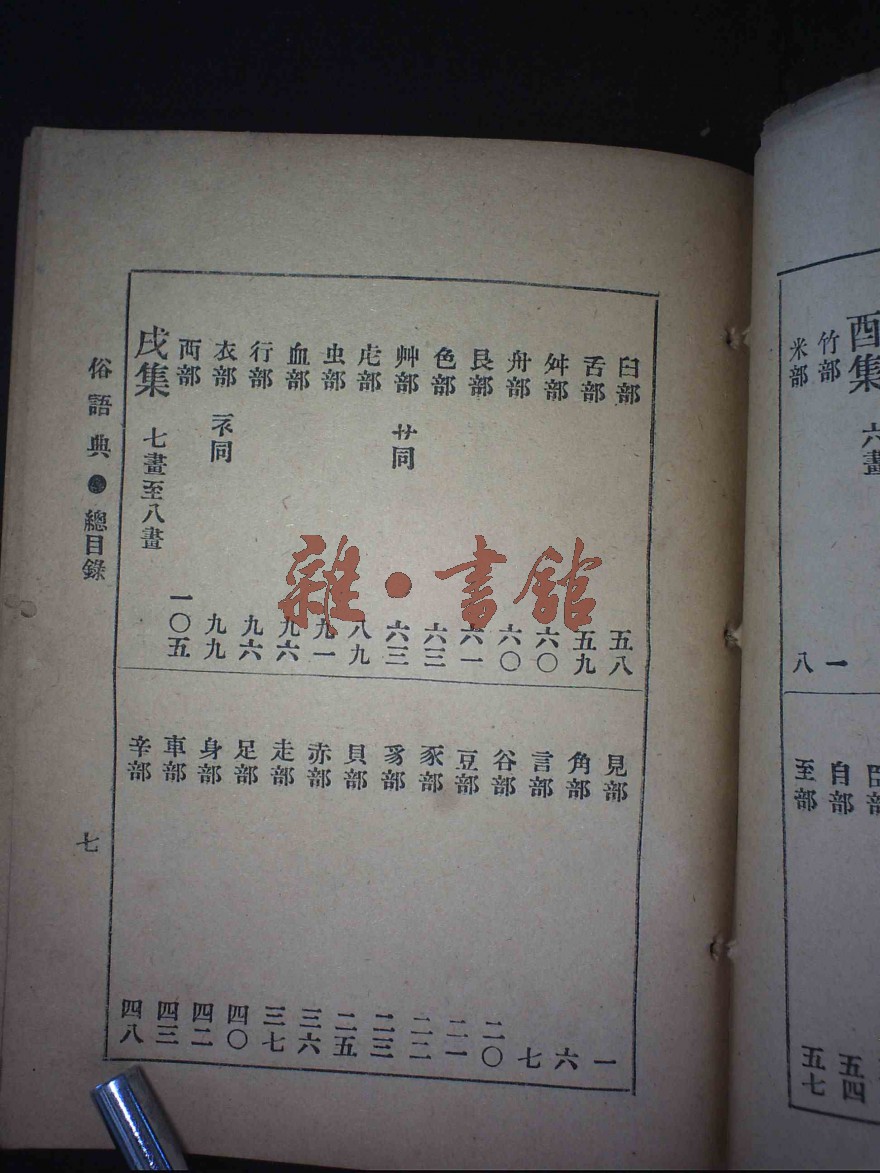 酉集 六畫
竹部 一
米部 八
自部 五四
至部 五七
臼部 五八
舌部 五九
舛部 六〇
舟部 六〇
艮部 六一
色部 六三
艸部 艹同 六三
虍部 八九
虫部 九一
血部 九六
行部 九六
衣部 衤同 九九
襾部 一〇五
戌集 七畫至八畫
見部 一
角部 六
言部 七
谷部 二〇
豆部 二一
豕部 二二
豸部 二三
貝部 二五
赤部 三六
走部 三七
足部 四〇
身部 四二
車部 四三
辛部 四八
俗語典●總目錄
七
雜·書館